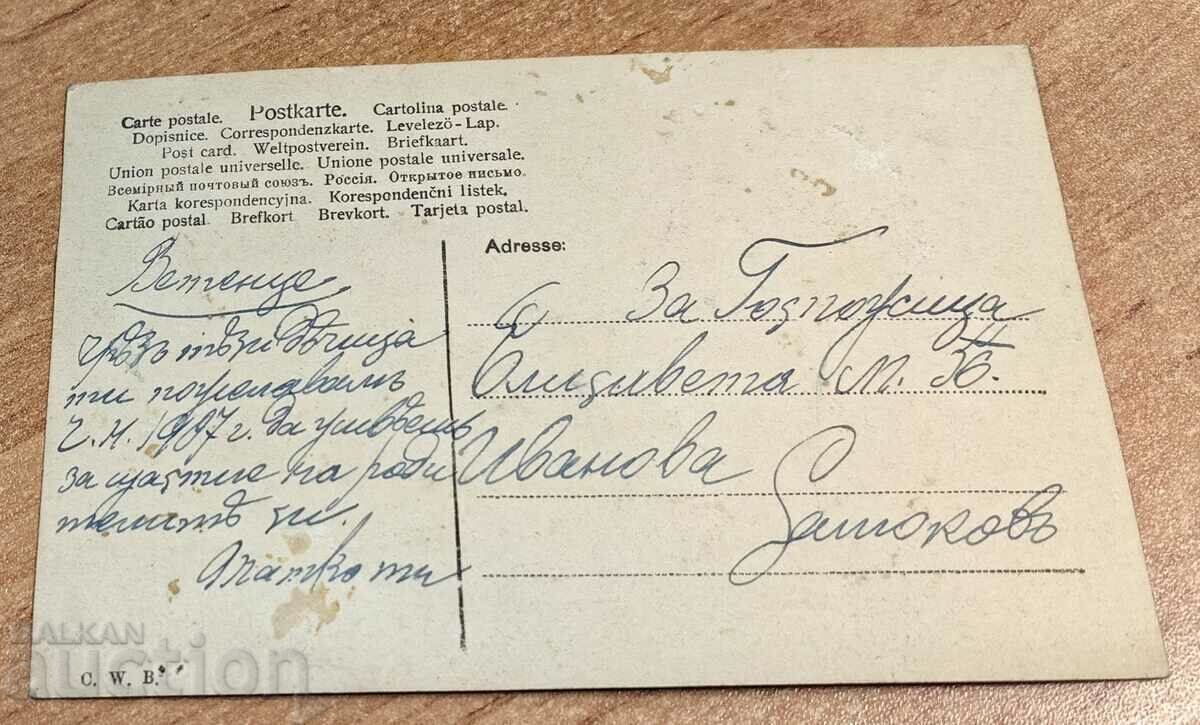 Carte postale. Postkarte. Cartolina postale.
Dopisnice. Correspondenzkarte. Levelező-Lap.
Post card. Weltpostverein. Briefkaart.
Union postale universelle. Unione postale universale.
Всемірный почтовый союзъ. Россія. Открытое письмо.
Karta korespondencyjna. Korespondenční listek.
Cartão postal. Brefkort. Brevkort. Tarjeta postal.
Ветенце
чрѣзъ тѣзи дѣчица
ти пожелавамъ
Ч.Н. 1907 г. да
за щастие на роди
телитѣ си.
Татко ти
Adresse:
За Госпожица
Елисавета М.
Иванова
C. W. B.
BALKAN
auction